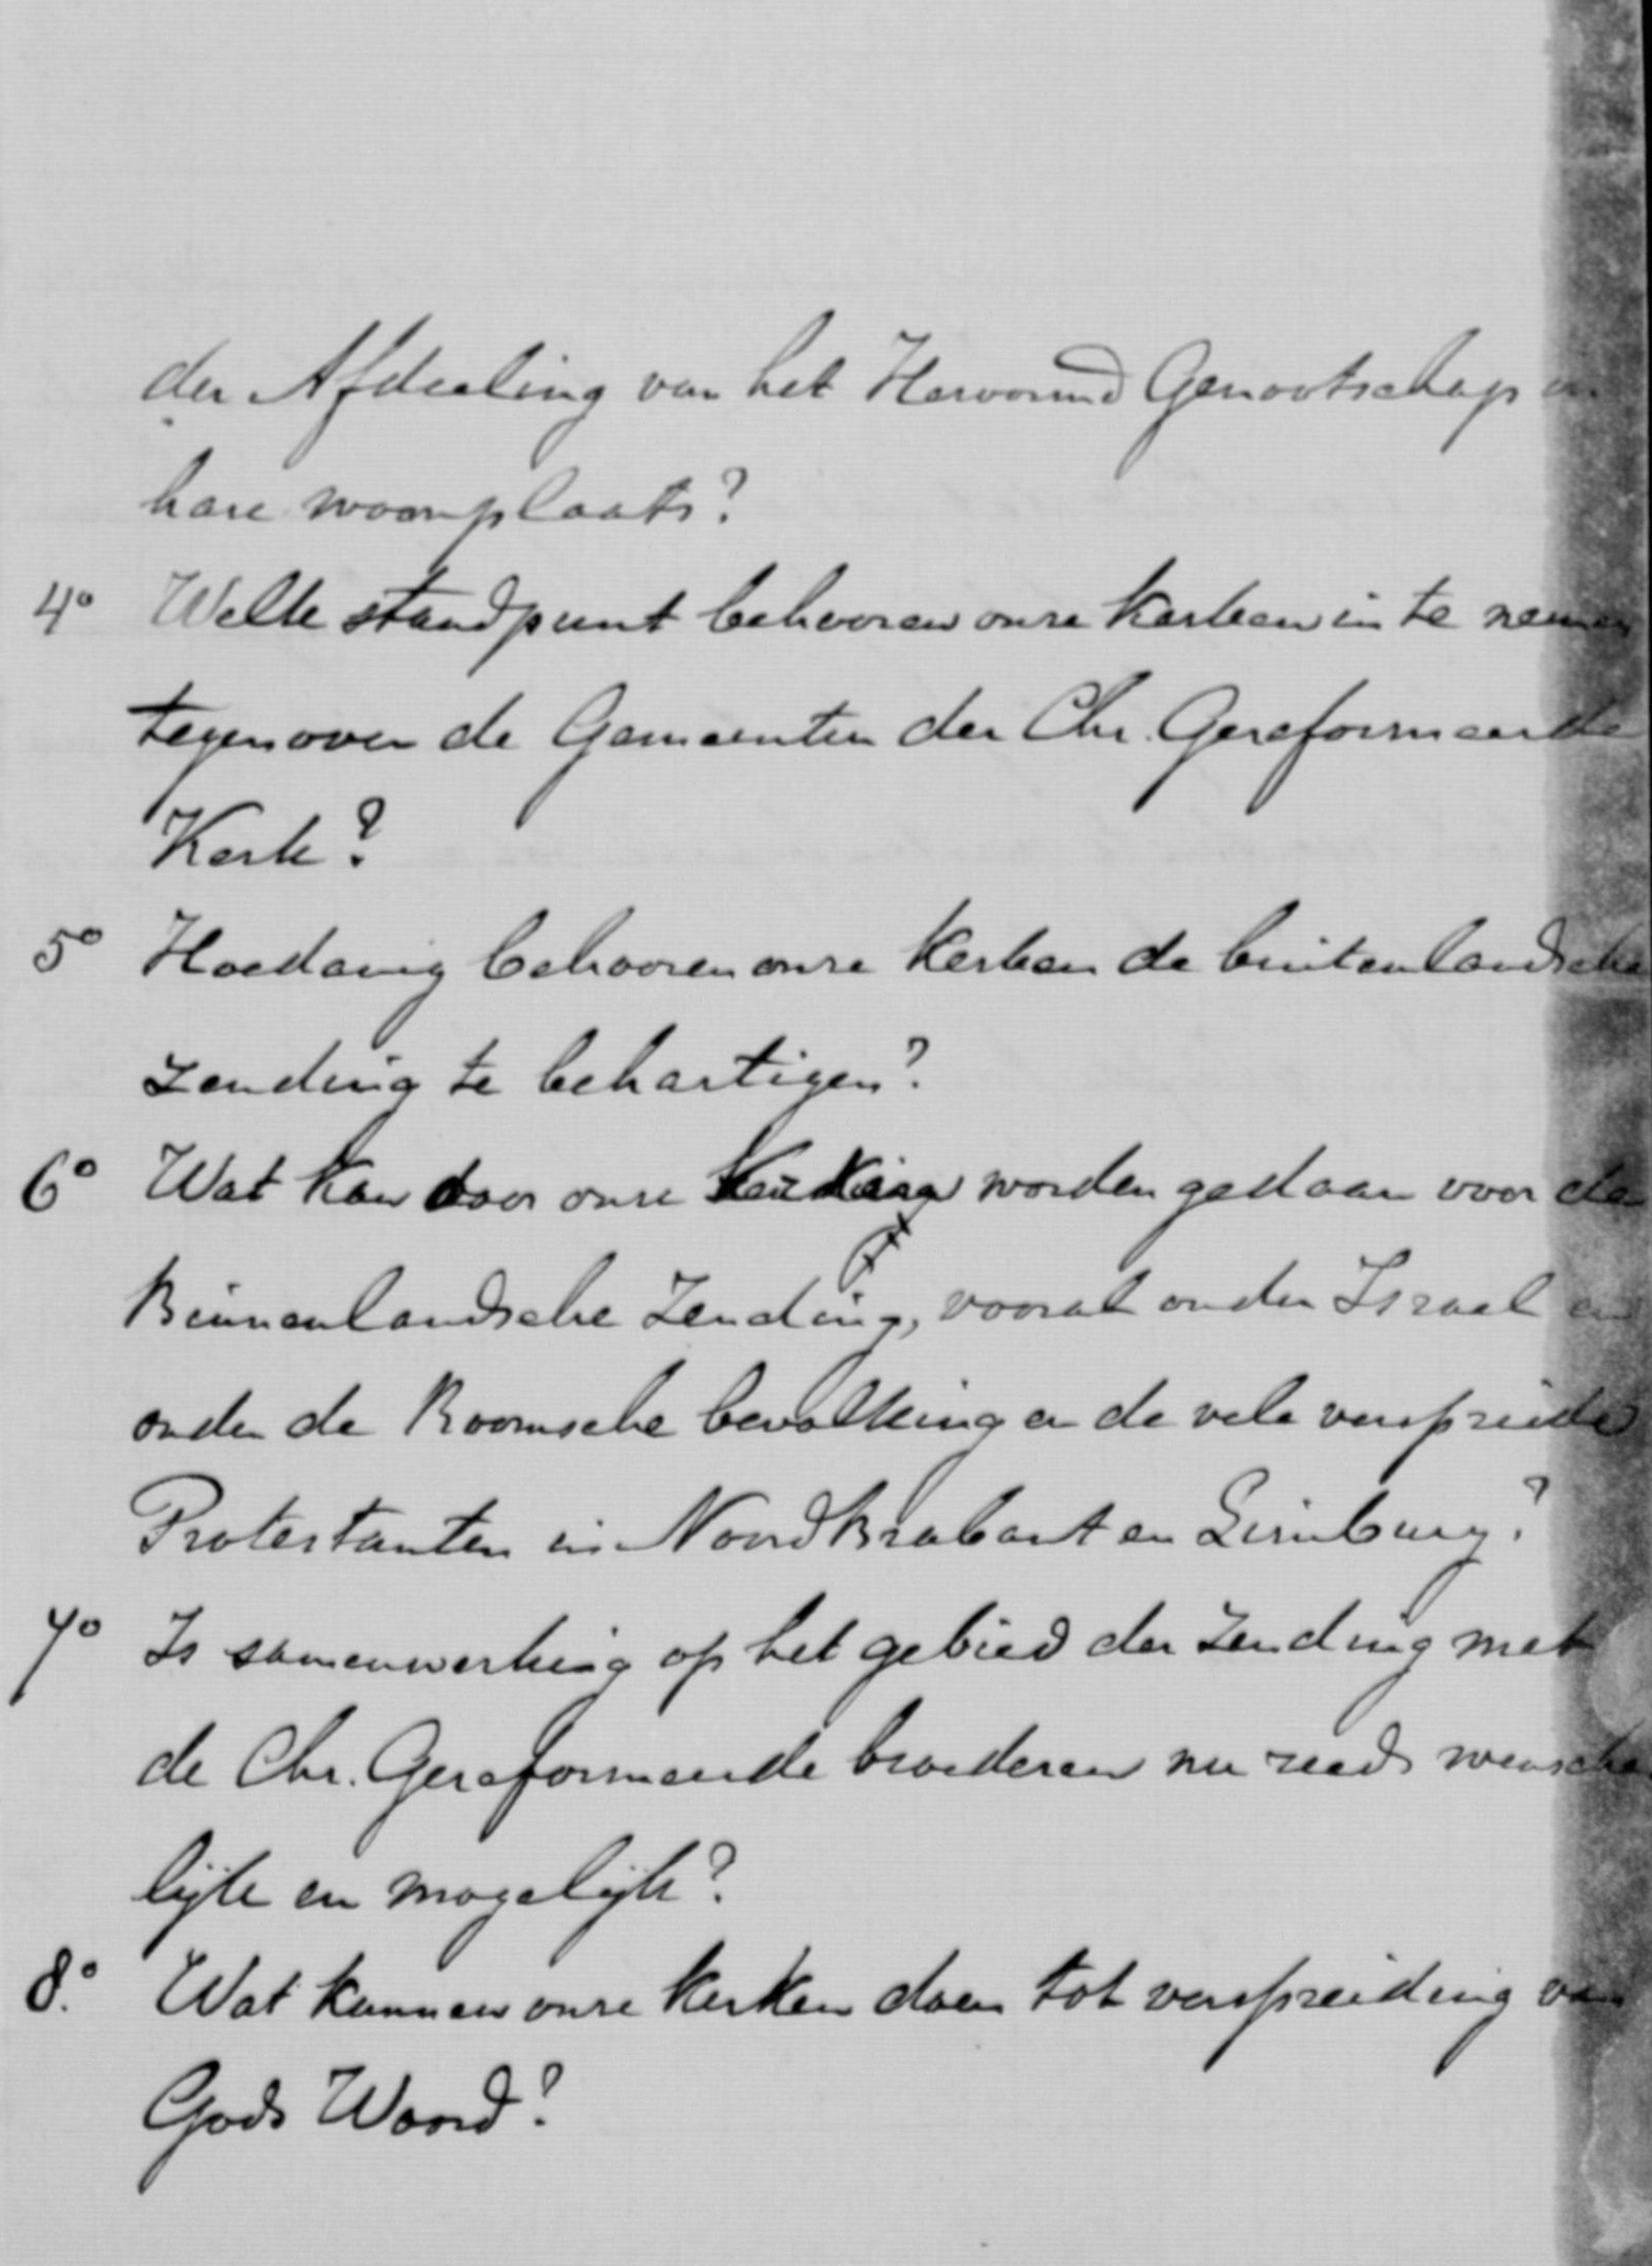 der Afdeeling van het Hervormd Genootschap in
hare woonplaats?
4° Welk standpunt behooren onze Kerken in te nemen
tegenover de Gemeenten der Chr. Gereformeerde
Kerk?
5° Hoedanig behooren onze Kerken de buitenlandsche
Zending te behartigen?
6° Wat kan door onze worden gedaan voor de
Binnenlandsche Zending, vooral onder Israel en
onder de Roomsche bevolking en de vele verspreide
Protestanten in Noord Brabant en Limburg?
7° Is samenwerking op het gebied der Zending met
de Chr. Gereformeerde broederen nu reeds wensche
lijk en mogelijk?
8.° Wat kunnen onze Kerken doen tot verspreiding van
Gods Woord?